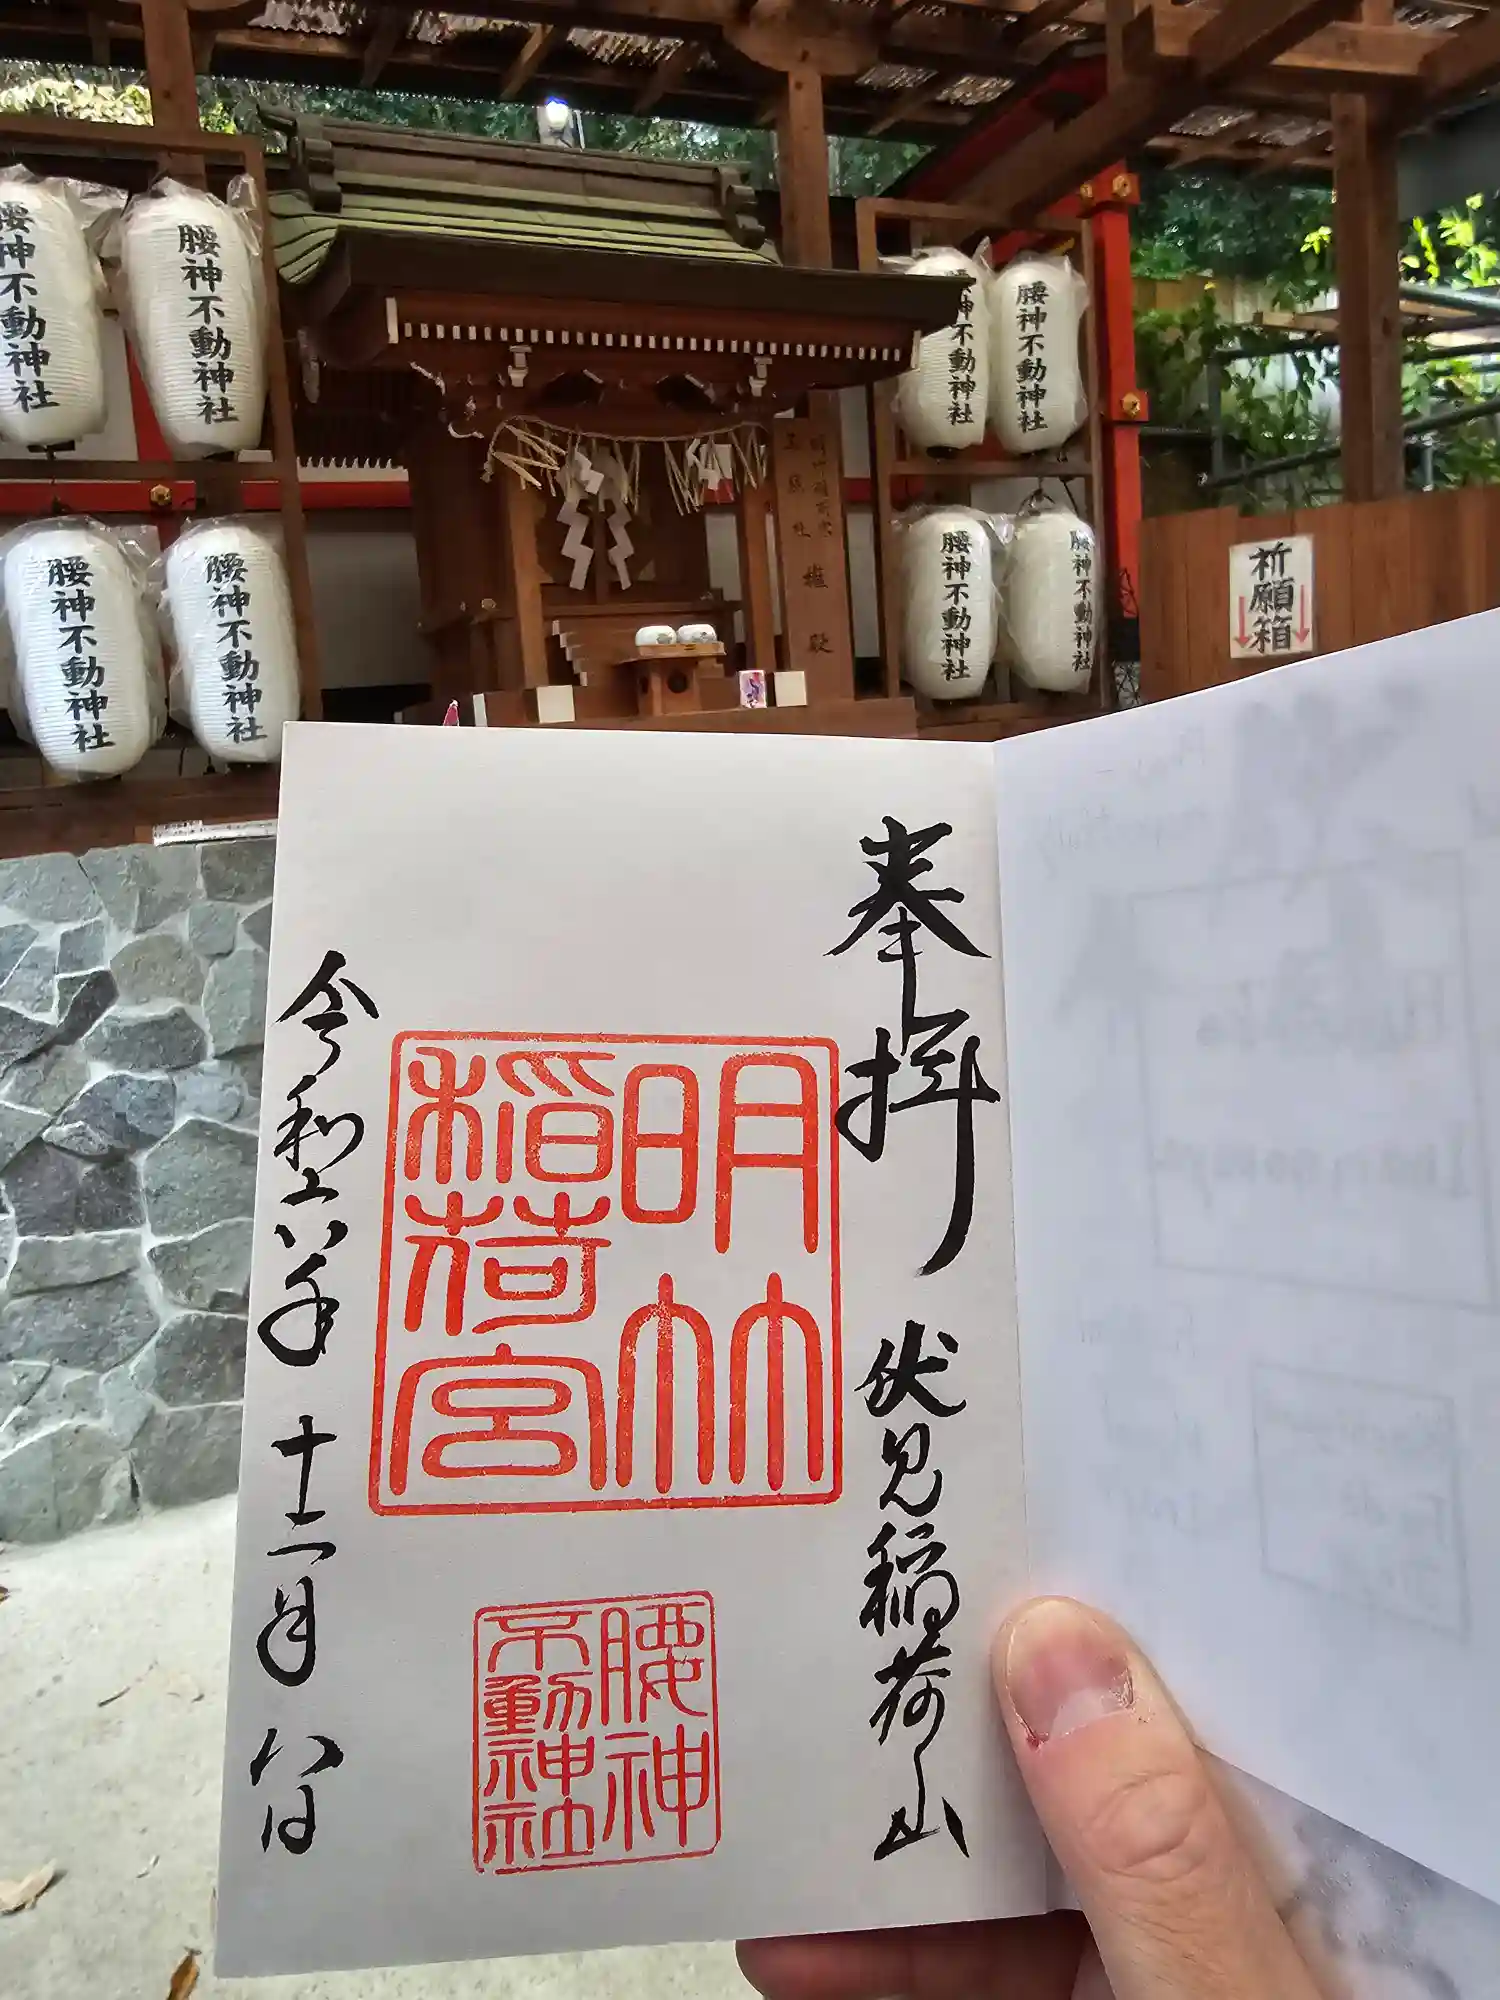 腰神不動神社
腰神不動神社
腰神不動神社
腰神不動神社
腰神不動神社
腰神不動神社
腰神不動神社
腰神不動神社
祈願箱
奉拝 伏見稲荷山
明竹
稲荷宮
腰神
不動神社
令和六年 十二月 八日